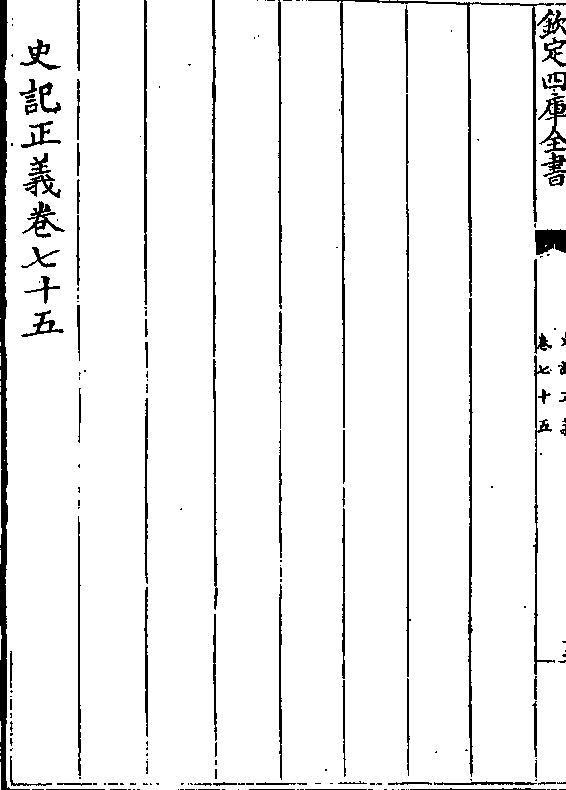 欽定四庫全書
史記正義
卷七十五
史記正義卷七十五